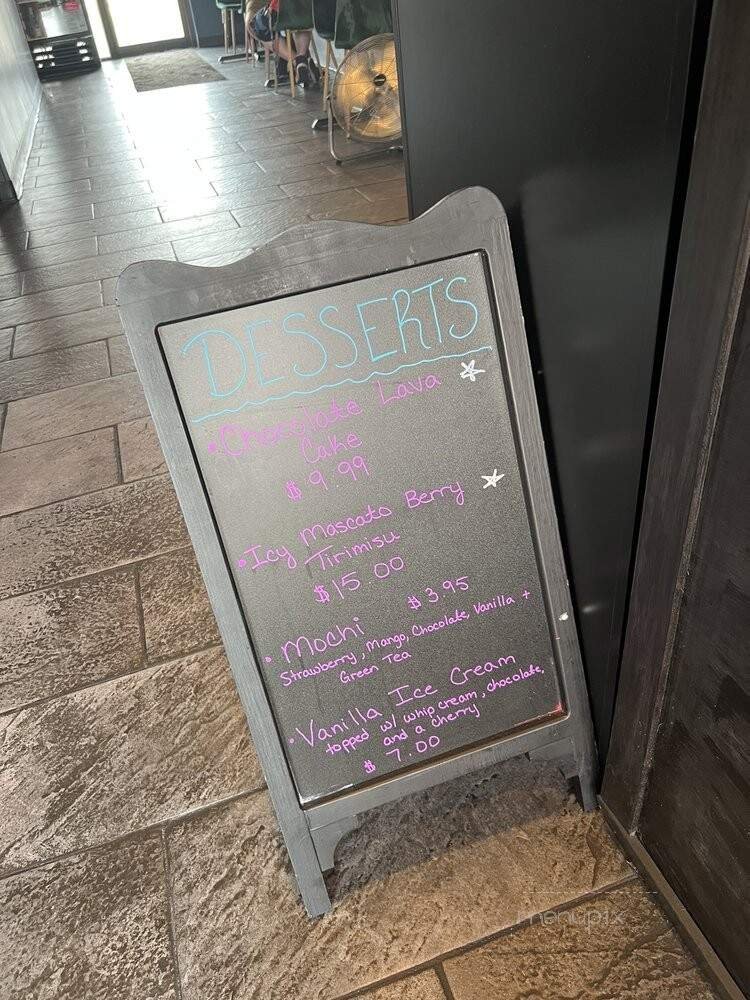 DESSERTS
• Chocolate Lava
Cake
$9.99
• Icy Moscato Berry
Tirimisu
$15.00
• Mochi $3.95
Strawberry, Mango, Chocolate, Vanilla +
Green Tea
• Vanilla Ice Cream
topped w/ whip cream, chocolate,
and a cherry
$ 7.00
menupix